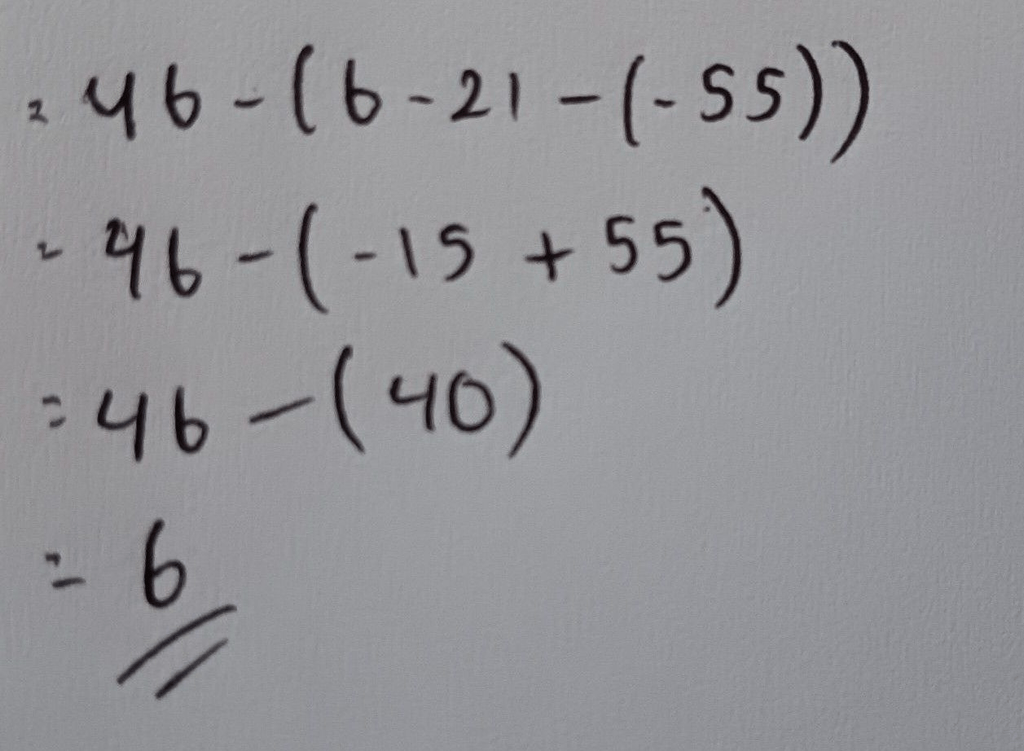 = 46 - (6 - 21 - (-55))
= 46 - (-15 + 55)
= 46 - (40)
= 6